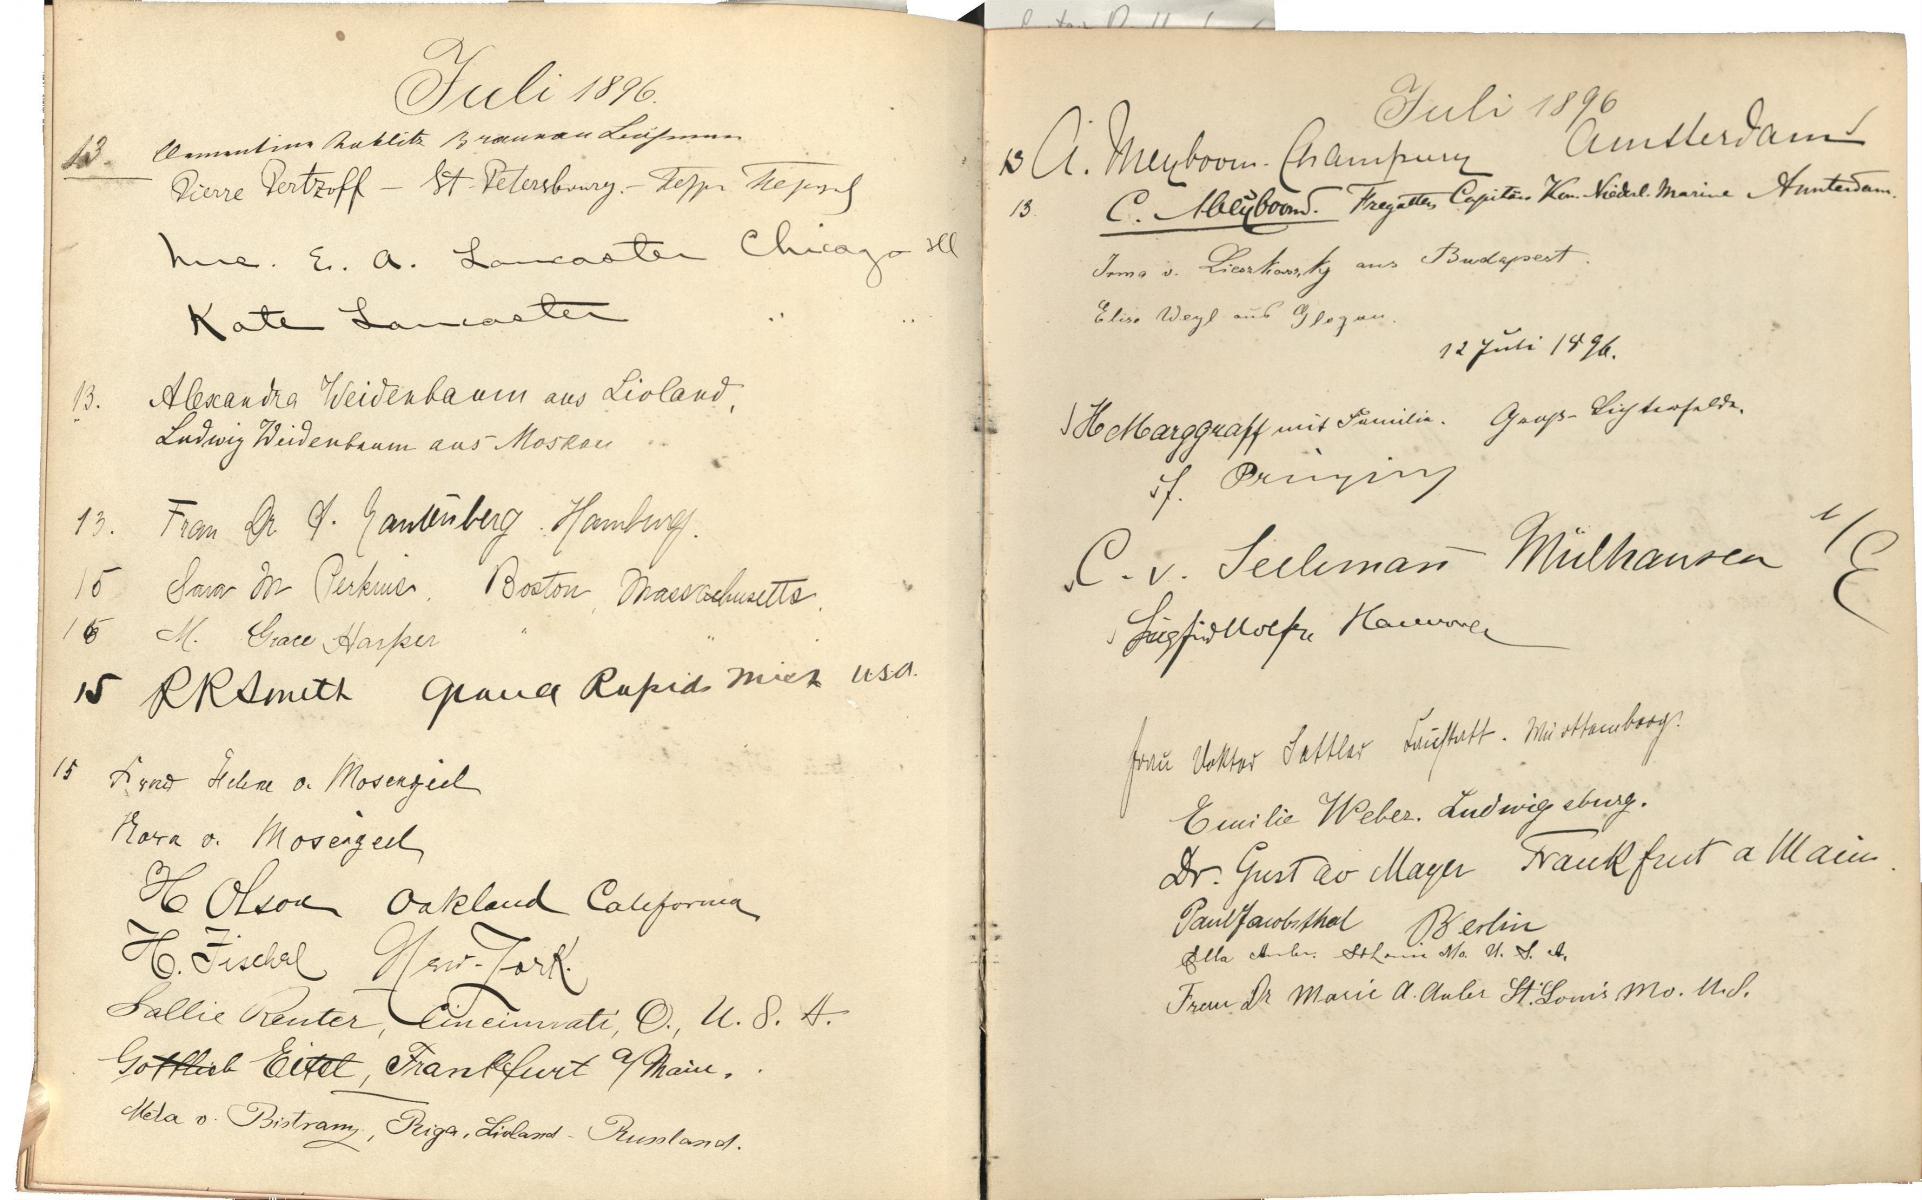 Juli 1896.
13.
Pierre Pertzoff – St. Petersbourg. –
E. A. Lancaster Chicago Ill
Kate Lancaster " "
13. Alexandra Weidenbaum aus Livland,
Ludwig Weidenbaum aus Moskau
13. Frau Dr Hamburg.
15 Sara M Perkins. Boston, Massachusetts.
15 M. Grace Harper " "
15 RR Smith Grand Rapids Mich USA.
15 Helene v. Mosengeil
v. Mosengeil
H Olson Oakland California
H. Fischel New-York.
Sallie Reuter, Cincinnati, O., U. S. A.
Gottlieb Eitel, Frankfurt a/Main.
Meta v. Bistram, Riga, Livland – Russland.
Juli 1896
13 A. Meyboom-Champury Amsterdam
13. C. Meÿboom. Fregatten Capitän Kon. Niederl. Marine Amsterdam.
Irma v. aus Budapest.
Elise Weyl aus Glogau.
12 Juli 1896.
H Marggraff mit Familie. Groß-Lichterfelde.
C. v. Seelemann Mülhausen i/E
Hannover
Frau Doktor Sattler Württemberg.
Emilie Weber. Ludwigsburg.
Dr. Gustav Mayer Frankfurt a Main.
Paul Jacobsthal Berlin
Ella Auler. St Louis Mo. U. S. A.
Frau Dr Marie A. Auler St. Louis Mo. U.S.